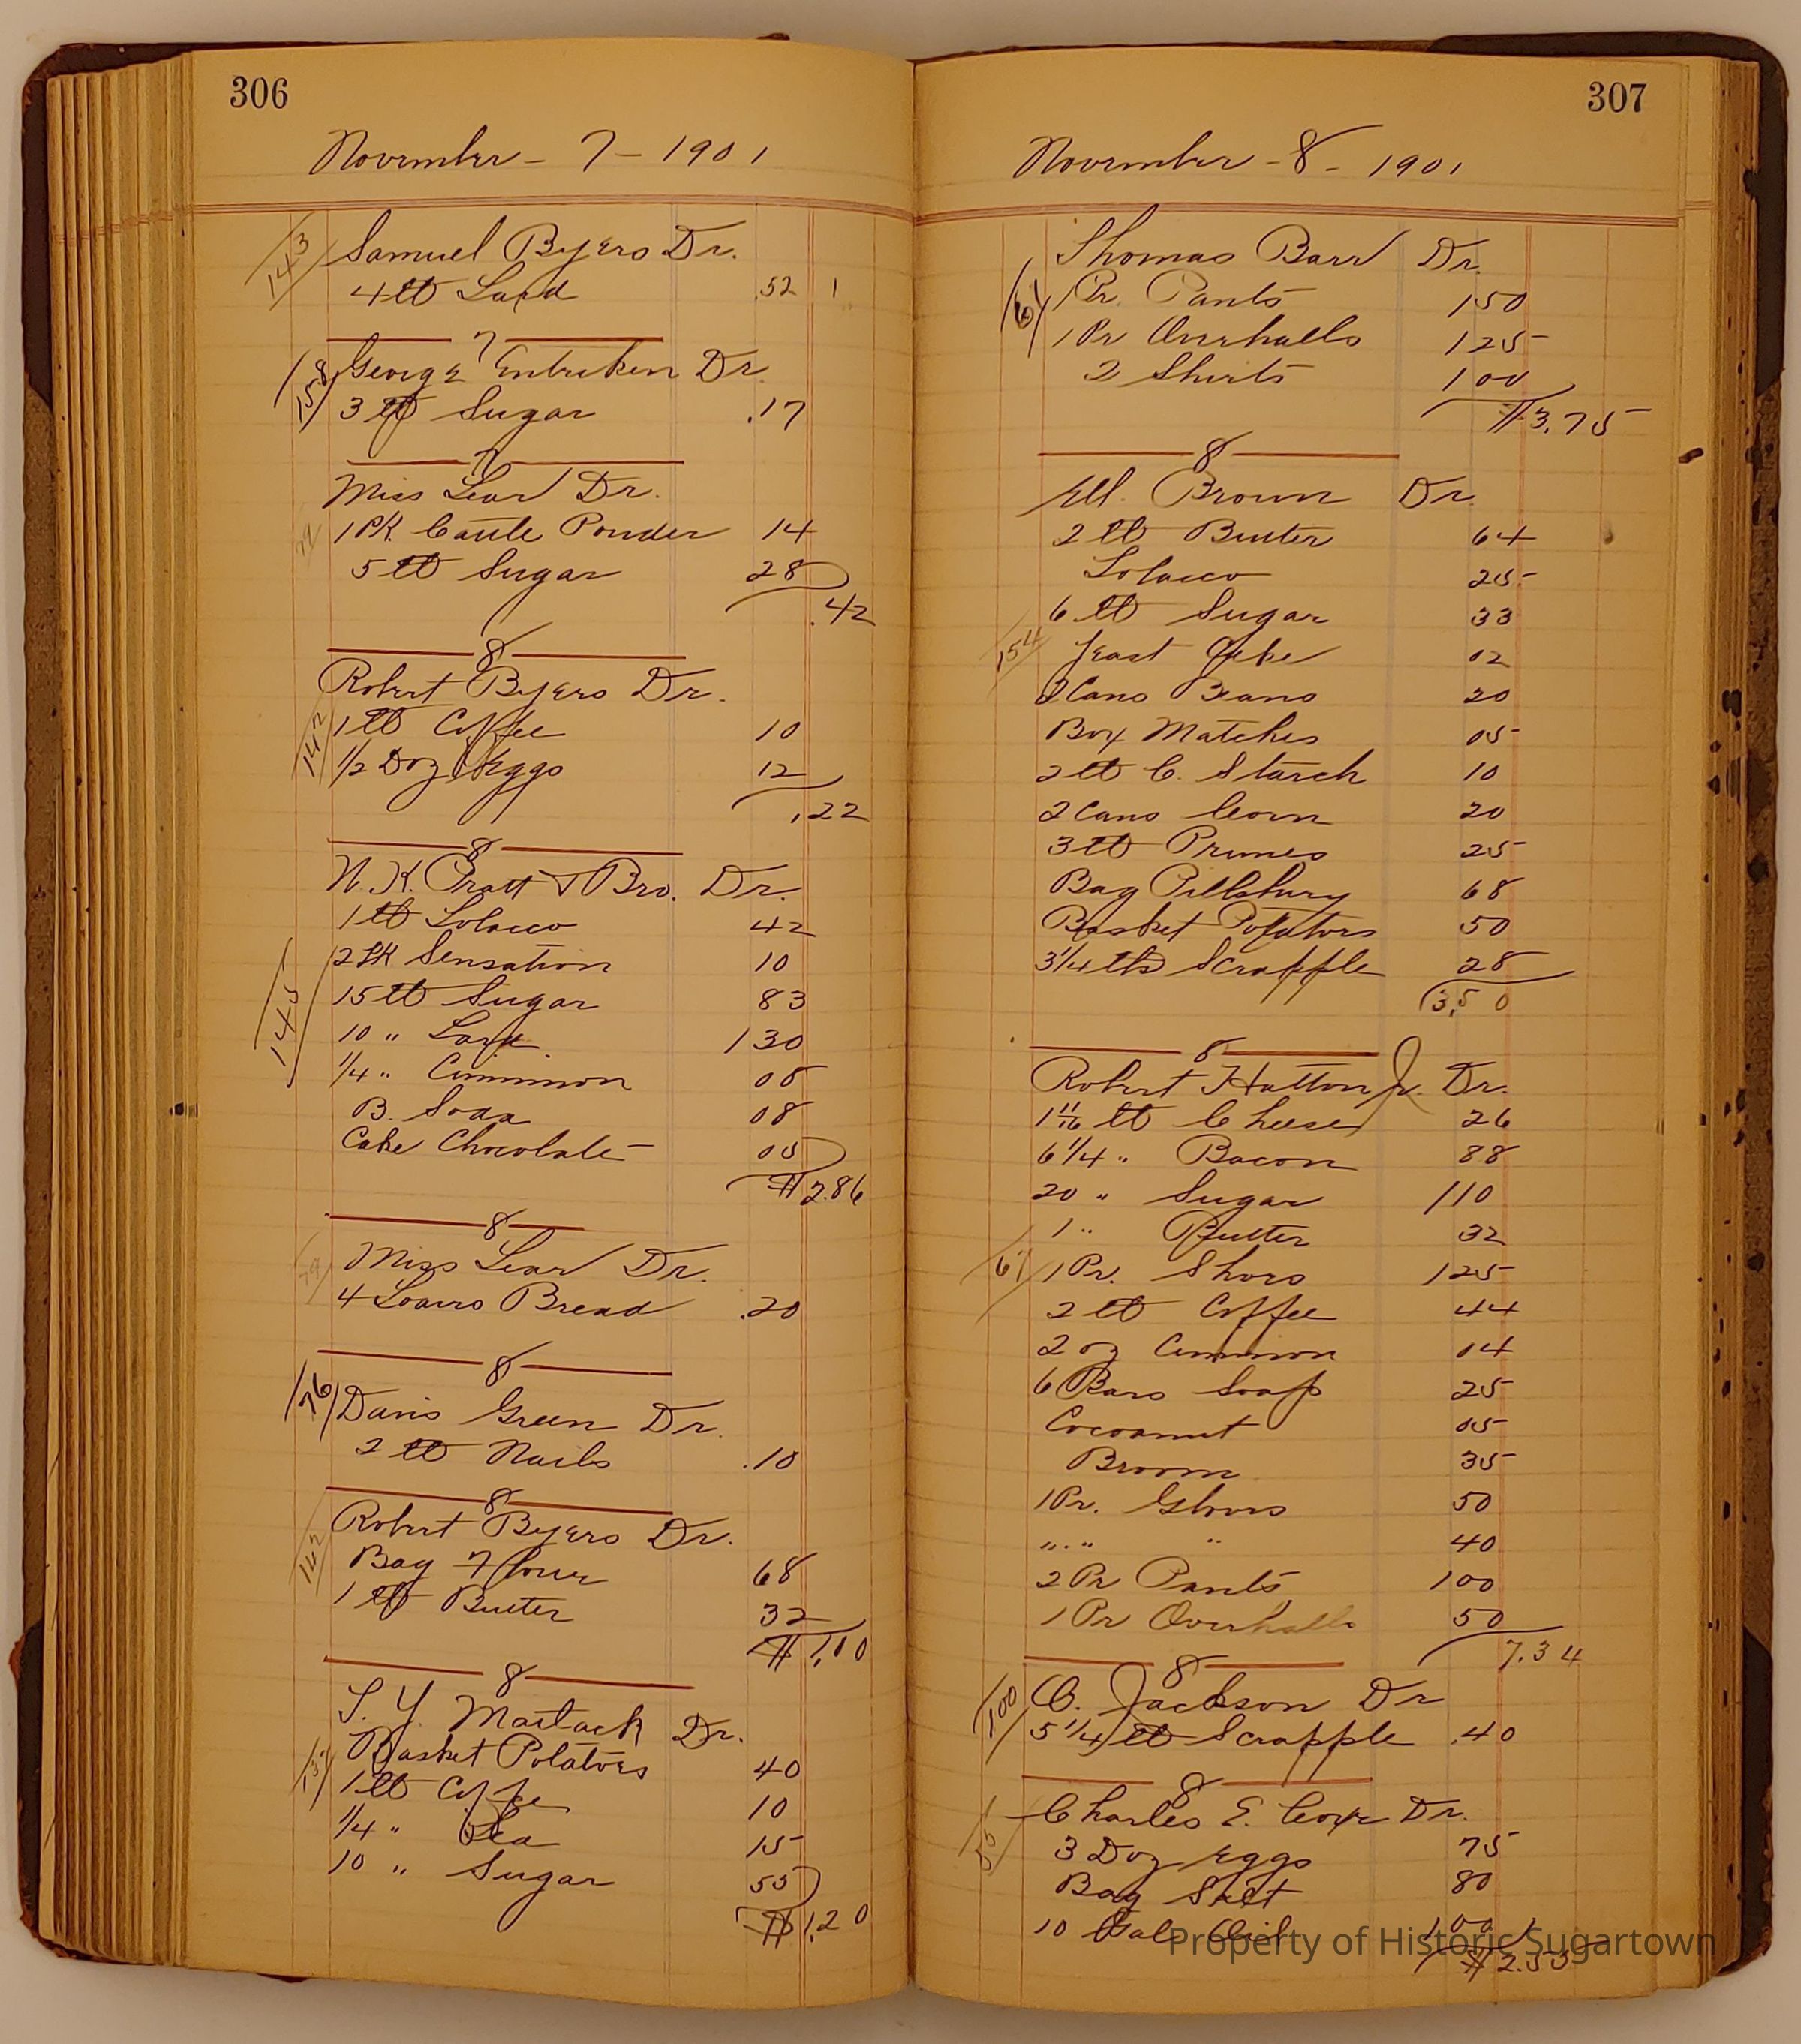 306
November - 7 - 1901
143 Samuel Byers Dr.
4 lb Lard .52 1
7
158 George Entriken Dr.
3 lb Sugar .17
7
Miss Lear Dr.
79 1 PK Cattle Powder 14
5 lb Sugar 28
.42
8
Robert Byers Dr.
142 1 lb Coffee 10
1/2 Doz Eggs 12
.22
8
N. K. Pratt & Bro. Dr.
1 lb Tobacco 42
2 PK Sensation 10
15 lb Sugar 83
145 10 " Lard 130
1/4 " Cinnimon 08
B. Soda 08
Cake Chocolate 05
$2.86
8
79 Miss Lear Dr.
4 Loaves Bread .20
8
76 Davis Green Dr.
2 lb Nails .10
8
142 Robert Byers Dr.
Bag Flour 68
1 lb Butter 32
$1.00
8
T. Y. Matlack Dr.
Basket Potatoes 40
1 lb Coffee 10
1/4 " Tea 15
10 " Sugar 55
$1.20
307
November - 8 - 1901
Thomas Barr Dr.
61 1 Pr. Pants 150
1 Pr Overhalls 125
2 Shirts 100
$3.75
8
Ell. Brown Dr.
2 lb Butter 64
Tobacco 25
6 lb Sugar 33
154 Yeast Jeke 02
2 Cans Beans 20
Box Matches 05
2 lb C. Starch 10
2 Cans Corn 20
3 lb Prunes 25
Bag Pillsbury 68
Basket Potatoes 50
3 1/4 lbs Scrapple 28
3.50
8
Robert Hatton Jr. Dr.
1 11/16 lb Cheese 26
6 1/4 " Bacon 88
20 " Sugar 110
1 " Butter 32
67 1 Pr. Shoes 125
2 lb Coffee 44
2 oz Cinnimon 04
6 Bars Soap 25
Cocoanut 05
Broom 35
1 Pr. Gloves 50
" " " 40
2 Pr Pants 100
1 Pr Overhalls 50
7.34
8
100 C. Jackson Dr
5 1/4 lb Scrapple .40
8
55 Charles E. Coxe Dr.
3 Doz Eggs 75
Bag Salt 80
10 Gal Oil 100
$2.55
Property of Historic Sugartown